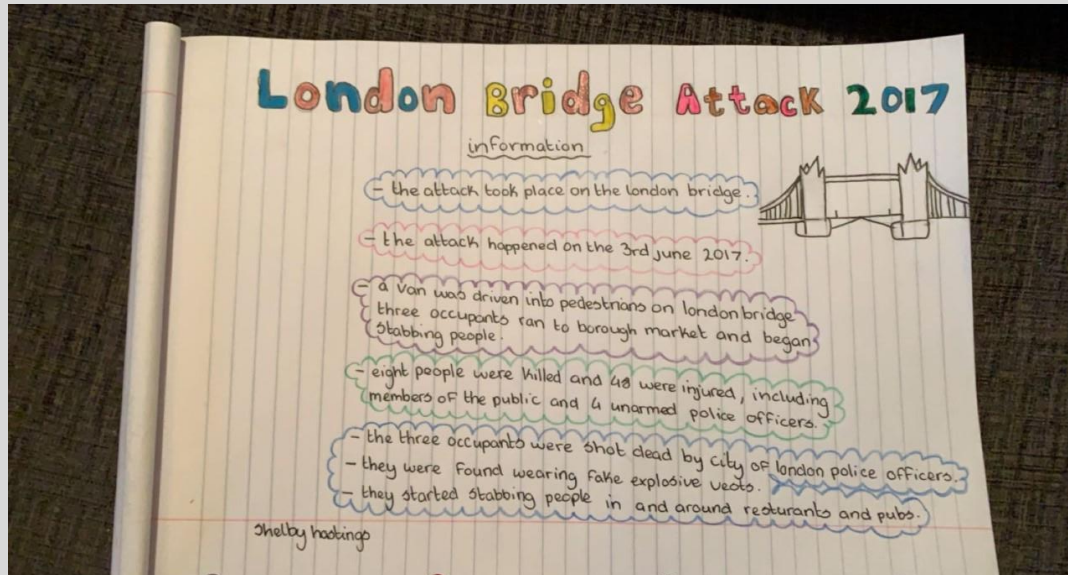 London Bridge Attack 2017
information
- the attack took place on the london bridge.
- the attack happened on the 3rd june 2017.
- a van was driven into pedestrians on london bridge
three occupants ran to borough market and began
stabbing people.
- eight people were killed and 48 were injured, including
members of the public and 4 unarmed police officers.
- the three occupants were shot dead by city of london police officers.
- they were found wearing fake explosive vests.
- they started stabbing people in and around resturants and pubs.
Shelby hastings